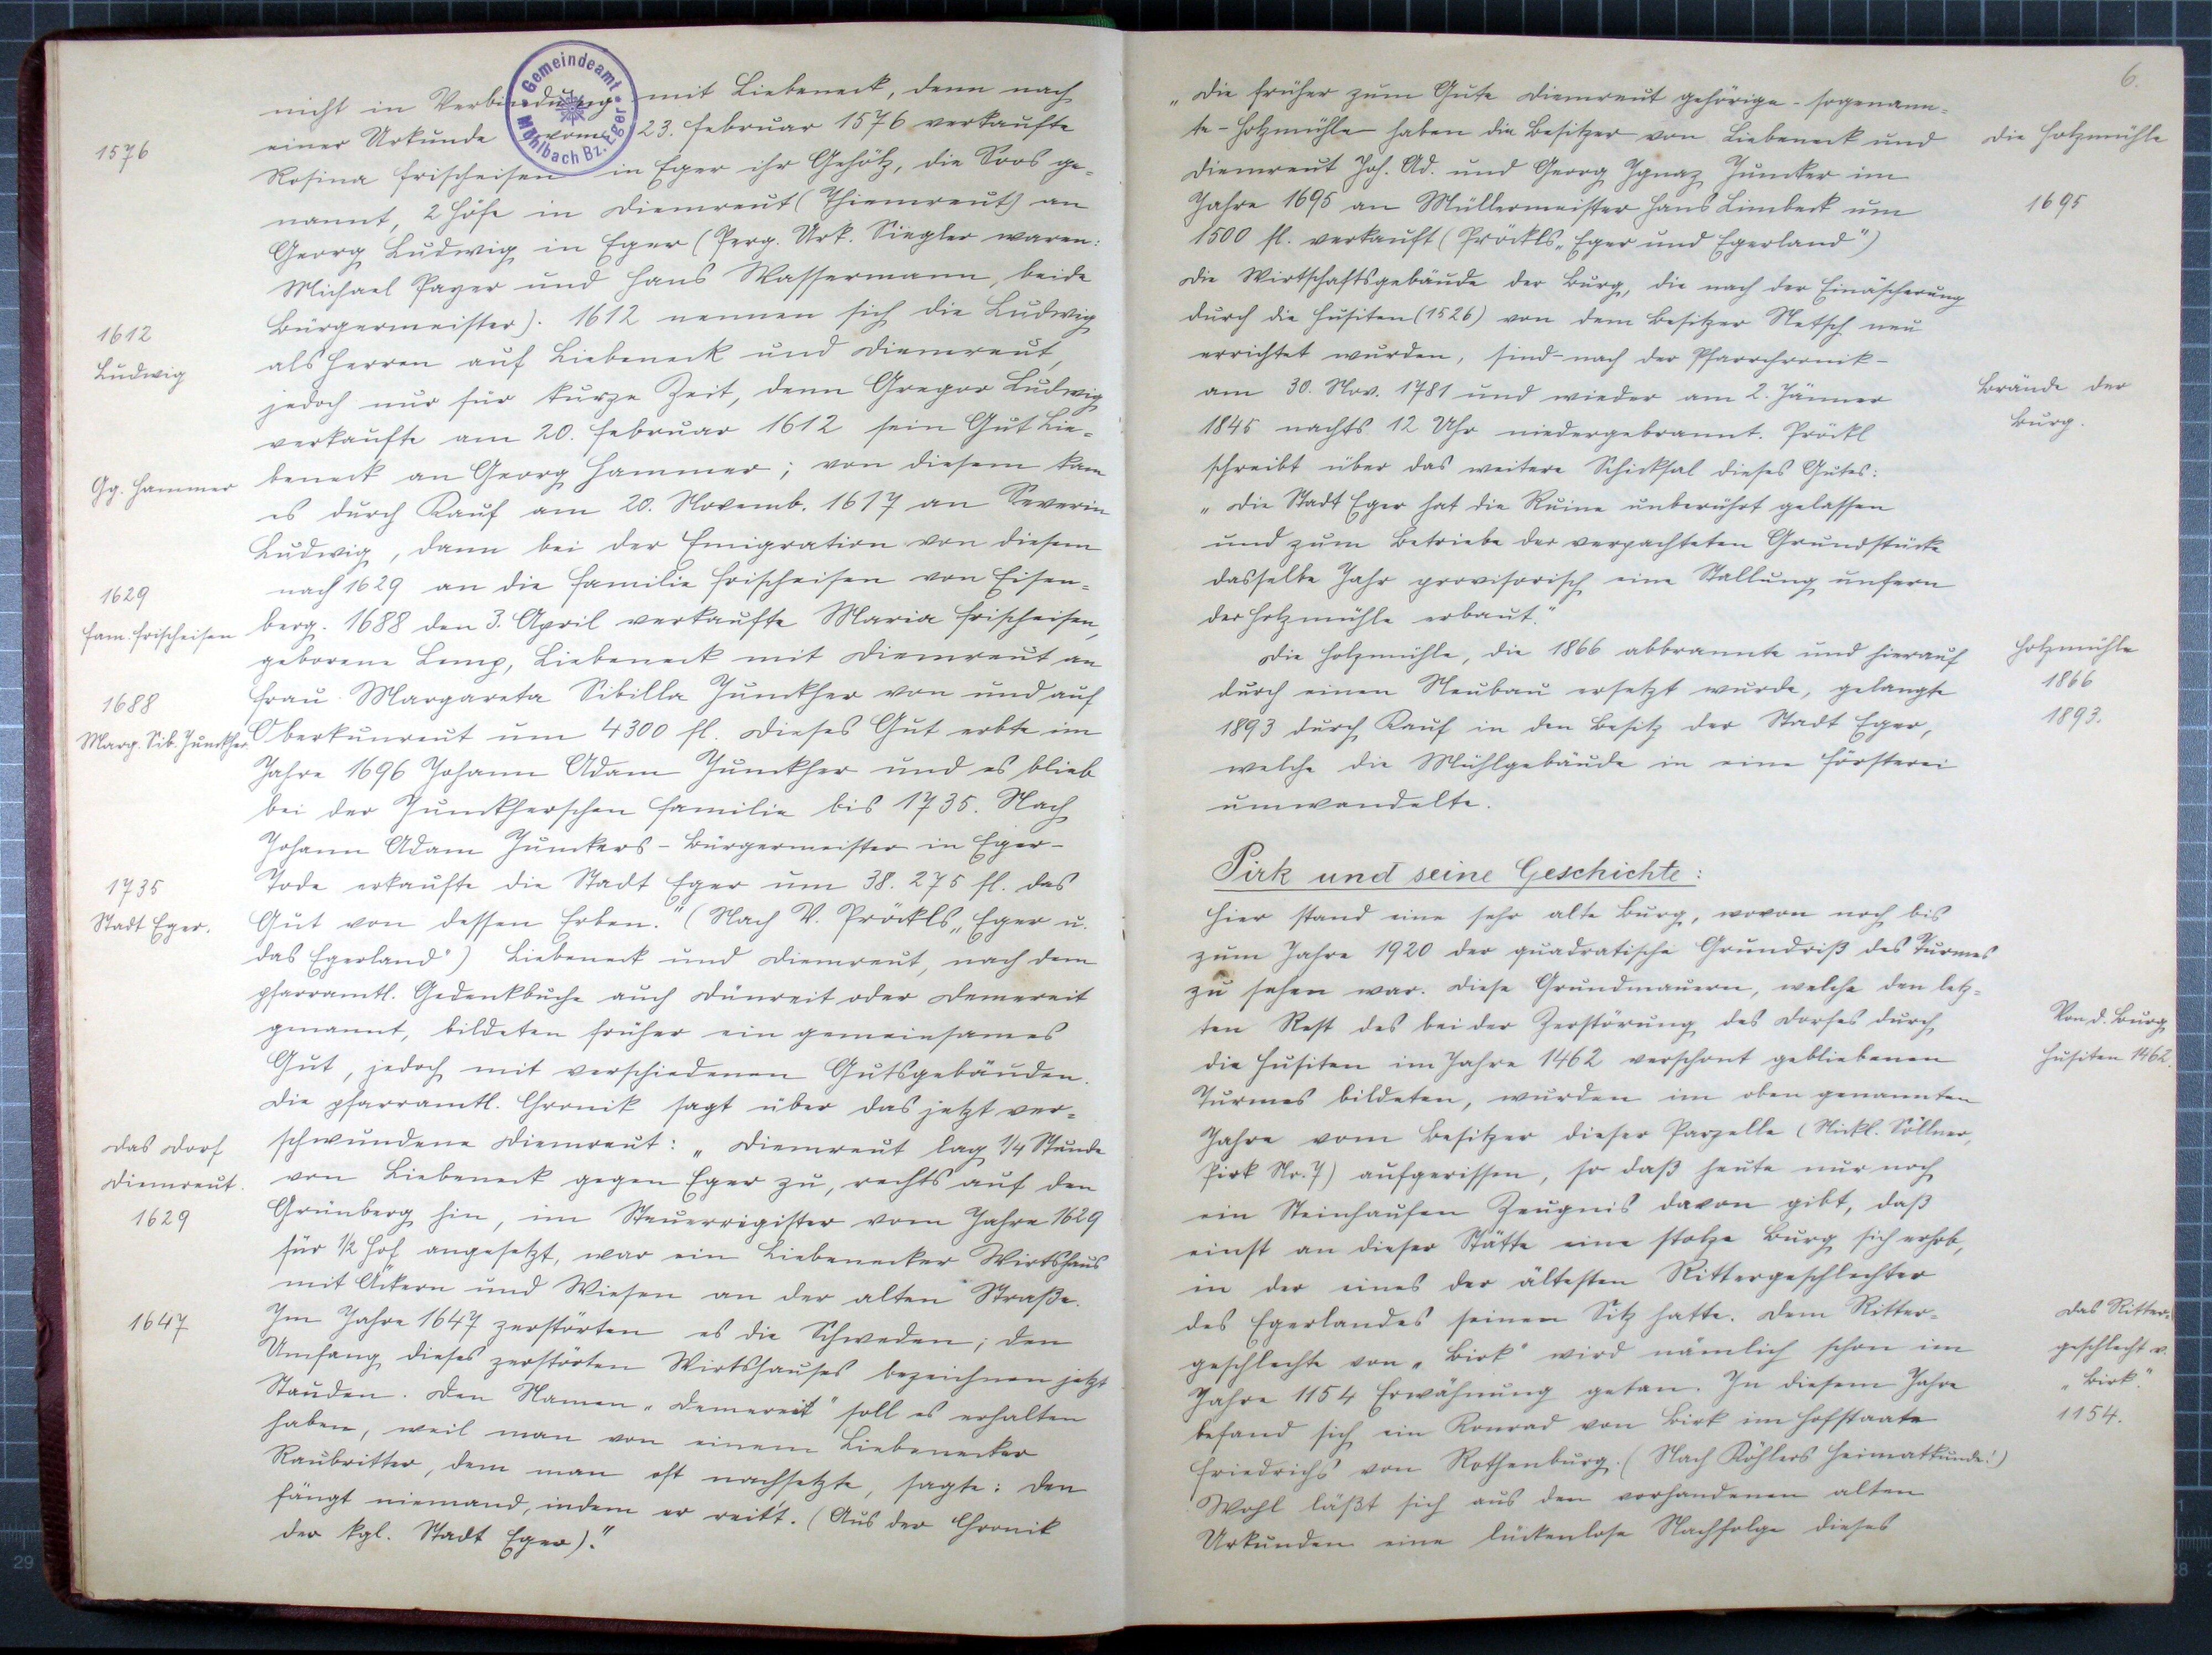 Gemeindeamt
Mühlbach Bz. Eger
nicht in Verbindung mit Liebeneck, denn nach
1576
einer Urkunde vom 23. Februar 1576 verkaufte
Rosina Frischeisen in Eger ihr Gehölz, die Soos ge-
nannt, 2 Höfe in Diemreut (Thiemreut) an
Georg Ludwig in Eger (Perg. Urk. Siegler waren:
Michael Payer und Hans Wassermann, beide
1612
Bürgermeister). 1612 nennen sich die Ludwig
Ludwig
als Herren auf Liebeneck und Diemreut,
jedoch nur für kurze Zeit, denn Gregor Ludwig
verkaufte am 20. Februar 1612 sein Gut Lie-
Gg. Hammer
beneck an Georg Hammer; von diesem kam
es durch Kauf am 20. Novemb. 1617 an Severin
Ludwig, dann bei der Emigration von diesem
1629
nach 1629 an die Familie Frischeisen von Eisen-
Fam. Frischeisen
berg. 1688 den 3. April verkaufte Maria Frischeisen,
geborene Lemp, Liebeneck mit Diemreut an
1688
Frau Margareta Sibilla Junckher von und auf
Marg. Sib. Junckher.
Oberkunreut um 4300 fl. Dieses Gut erbte im
Jahre 1696 Johann Adam Junckher und es blieb
bei der Junckherschen Familie bis 1735. Nach
Johann Adam Junckers - Bürgermeister in Eger -
1735
Tode erkaufte die Stadt Eger um 38.275 fl. das
Stadt Eger.
Gut von dessen Erben." (Nach V. Pröckls „Eger u.
das Egerland") Liebeneck und Diemreut, nach dem
pfarramtl. Gedenkbuche auch Dünreit oder Demereit
genannt, bildeten früher ein gemeinsames
Gut, jedoch mit verschiedenen Gutsgebäuden.
Die pfarramtl. Chronik sagt über das jetzt ver-
Das Dorf
schwundene Diemreut: „Diemreut lag 1/4 Stunde
Diemreut.
von Liebeneck gegen Eger zu, rechts auf den
1629
Grünberg hin, im Steuerrigister vom Jahre 1629
für 1/2 Hof angesetzt, war ein Liebenecker Wirtshaus
mit Äckern und Wiesen an der alten Straße.
1647
Im Jahre 1647 zerstörten es die Schweden; den
Umfang dieses zerstörten Wirtshauses bezeichnen jetzt
Stauden. Den Namen „Demereit" soll es erhalten
haben, weil man von einem Liebenecker
Raubritter, dem man oft nachsetzte, sagte: Den
fängt niemand, indem er reit't. (Aus der Chronik
der kgl. Stadt Eger)."
6.
„Die früher zum Gute Diemreut gehörige - sogenann-
te - Holzmühle haben die Besitzer von Liebeneck und
Die Holzmühle
Diemreut Joh. Ad. und Georg Ignaz Juncker im
Jahre 1695 an Müllermeister Hans Limbeck um
1695
1500 fl. verkauft (Pröckls „Eger und Egerland")
Die Wirtschaftsgebäude der Burg, die nach der Einäscherung
durch die Husiten (1526) von dem Besitzer Netsch neu
errichtet wurden, sind - nach der Pfarrchronik -
am 30. Nov. 1781 und wieder am 2. Jänner
Brände der
1845 nachts 12 Uhr niedergebrannt. Pröckl
Burg.
schreibt über das weitere Schicksal dieses Gutes:
„Die Stadt Eger hat die Ruine unberührt gelassen
und zum Betriebe der verpachteten Grundstücke
dasselbe Jahr provisorisch eine Stallung unfern
der Holzmühle erbaut."
Die Holzmühle, die 1866 abbrannte und hierauf
Holzmühle
durch einen Neubau ersetzt wurde, gelangte
1866
1893 durch Kauf in den Besitz der Stadt Eger,
1893.
welche die Mühlgebäude in eine Försterei
umwandelte.
Pirk und seine Geschichte:
Hier stand eine sehr alte Burg, wovon noch bis
zum Jahre 1920 der quadratische Grundriß des Turmes
zu sehen war. Diese Grundmauern, welche den letz-
ten Rest des bei der Zerstörung des Dorfes durch
Von d. Burg
die Husiten im Jahre 1462 verschont gebliebenen
Husiten 1462.
Turmes bildeten, wurden im oben genannten
Jahre vom Besitzer dieser Parzelle (Nickl. Söllner,
Pirk Nr. 7) aufgerissen, so daß heute nur noch
ein Steinhaufen Zeugnis davon gibt, daß
einst an dieser Stätte eine stolze Burg sich erhob,
in der eines der ältesten Rittergeschlechter
des Egerlandes seinen Sitz hatte. Dem Ritter-
Das Ritter-
geschlechte von „Birk" wird nämlich schon im
geschlecht v.
Jahre 1154 Erwähnung getan. In diesem Jahre
„Birk."
befand sich ein Konrad von Birk im Hofstaate
1154.
Friedrichs von Rothenburg. (Nach Köhlers Heimatkunde!)
Wohl läßt sich aus den vorhandenen alten
Urkunden eine lückenlose Nachfolge dieses